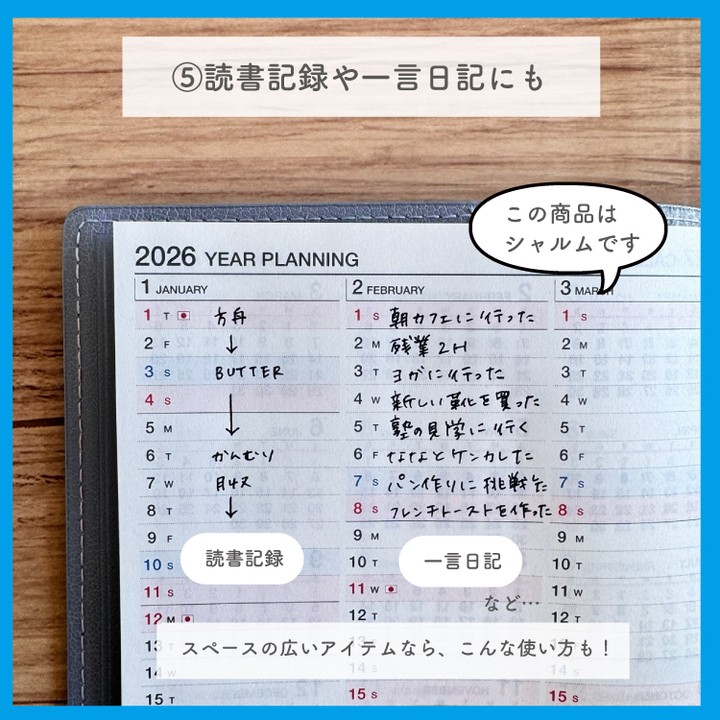 ⑤読書記録や一言日記にも
この商品は
シャルムです
2026 YEAR PLANNING
1 JANUARY
1 T 方舟
2 F
3 S BUTTER
4 S
5 M
6 T かんむり
7 W 月収
8 T
9 F
10 S
11 S
12 M
13 T
14 W
15 T
読書記録
2 FEBRUARY
1 S 朝カフェに行った
2 M 残業2H
3 T ヨガに行った
4 W 新しい靴を買った
5 T 塾の見学に行く
6 F ななとケンカした
7 S パン作りに挑戦した
8 S フレンチトーストを作った
9 M
10 T
11 W
12 T
15 S
一言日記
など…
3 MAR
1 S
2 M
3 T
4 W
5 T
6 F
7 S
8 S
9 M
10 T
11 W
12 T
15 S
スペースの広いアイテムなら、こんな使い方も！